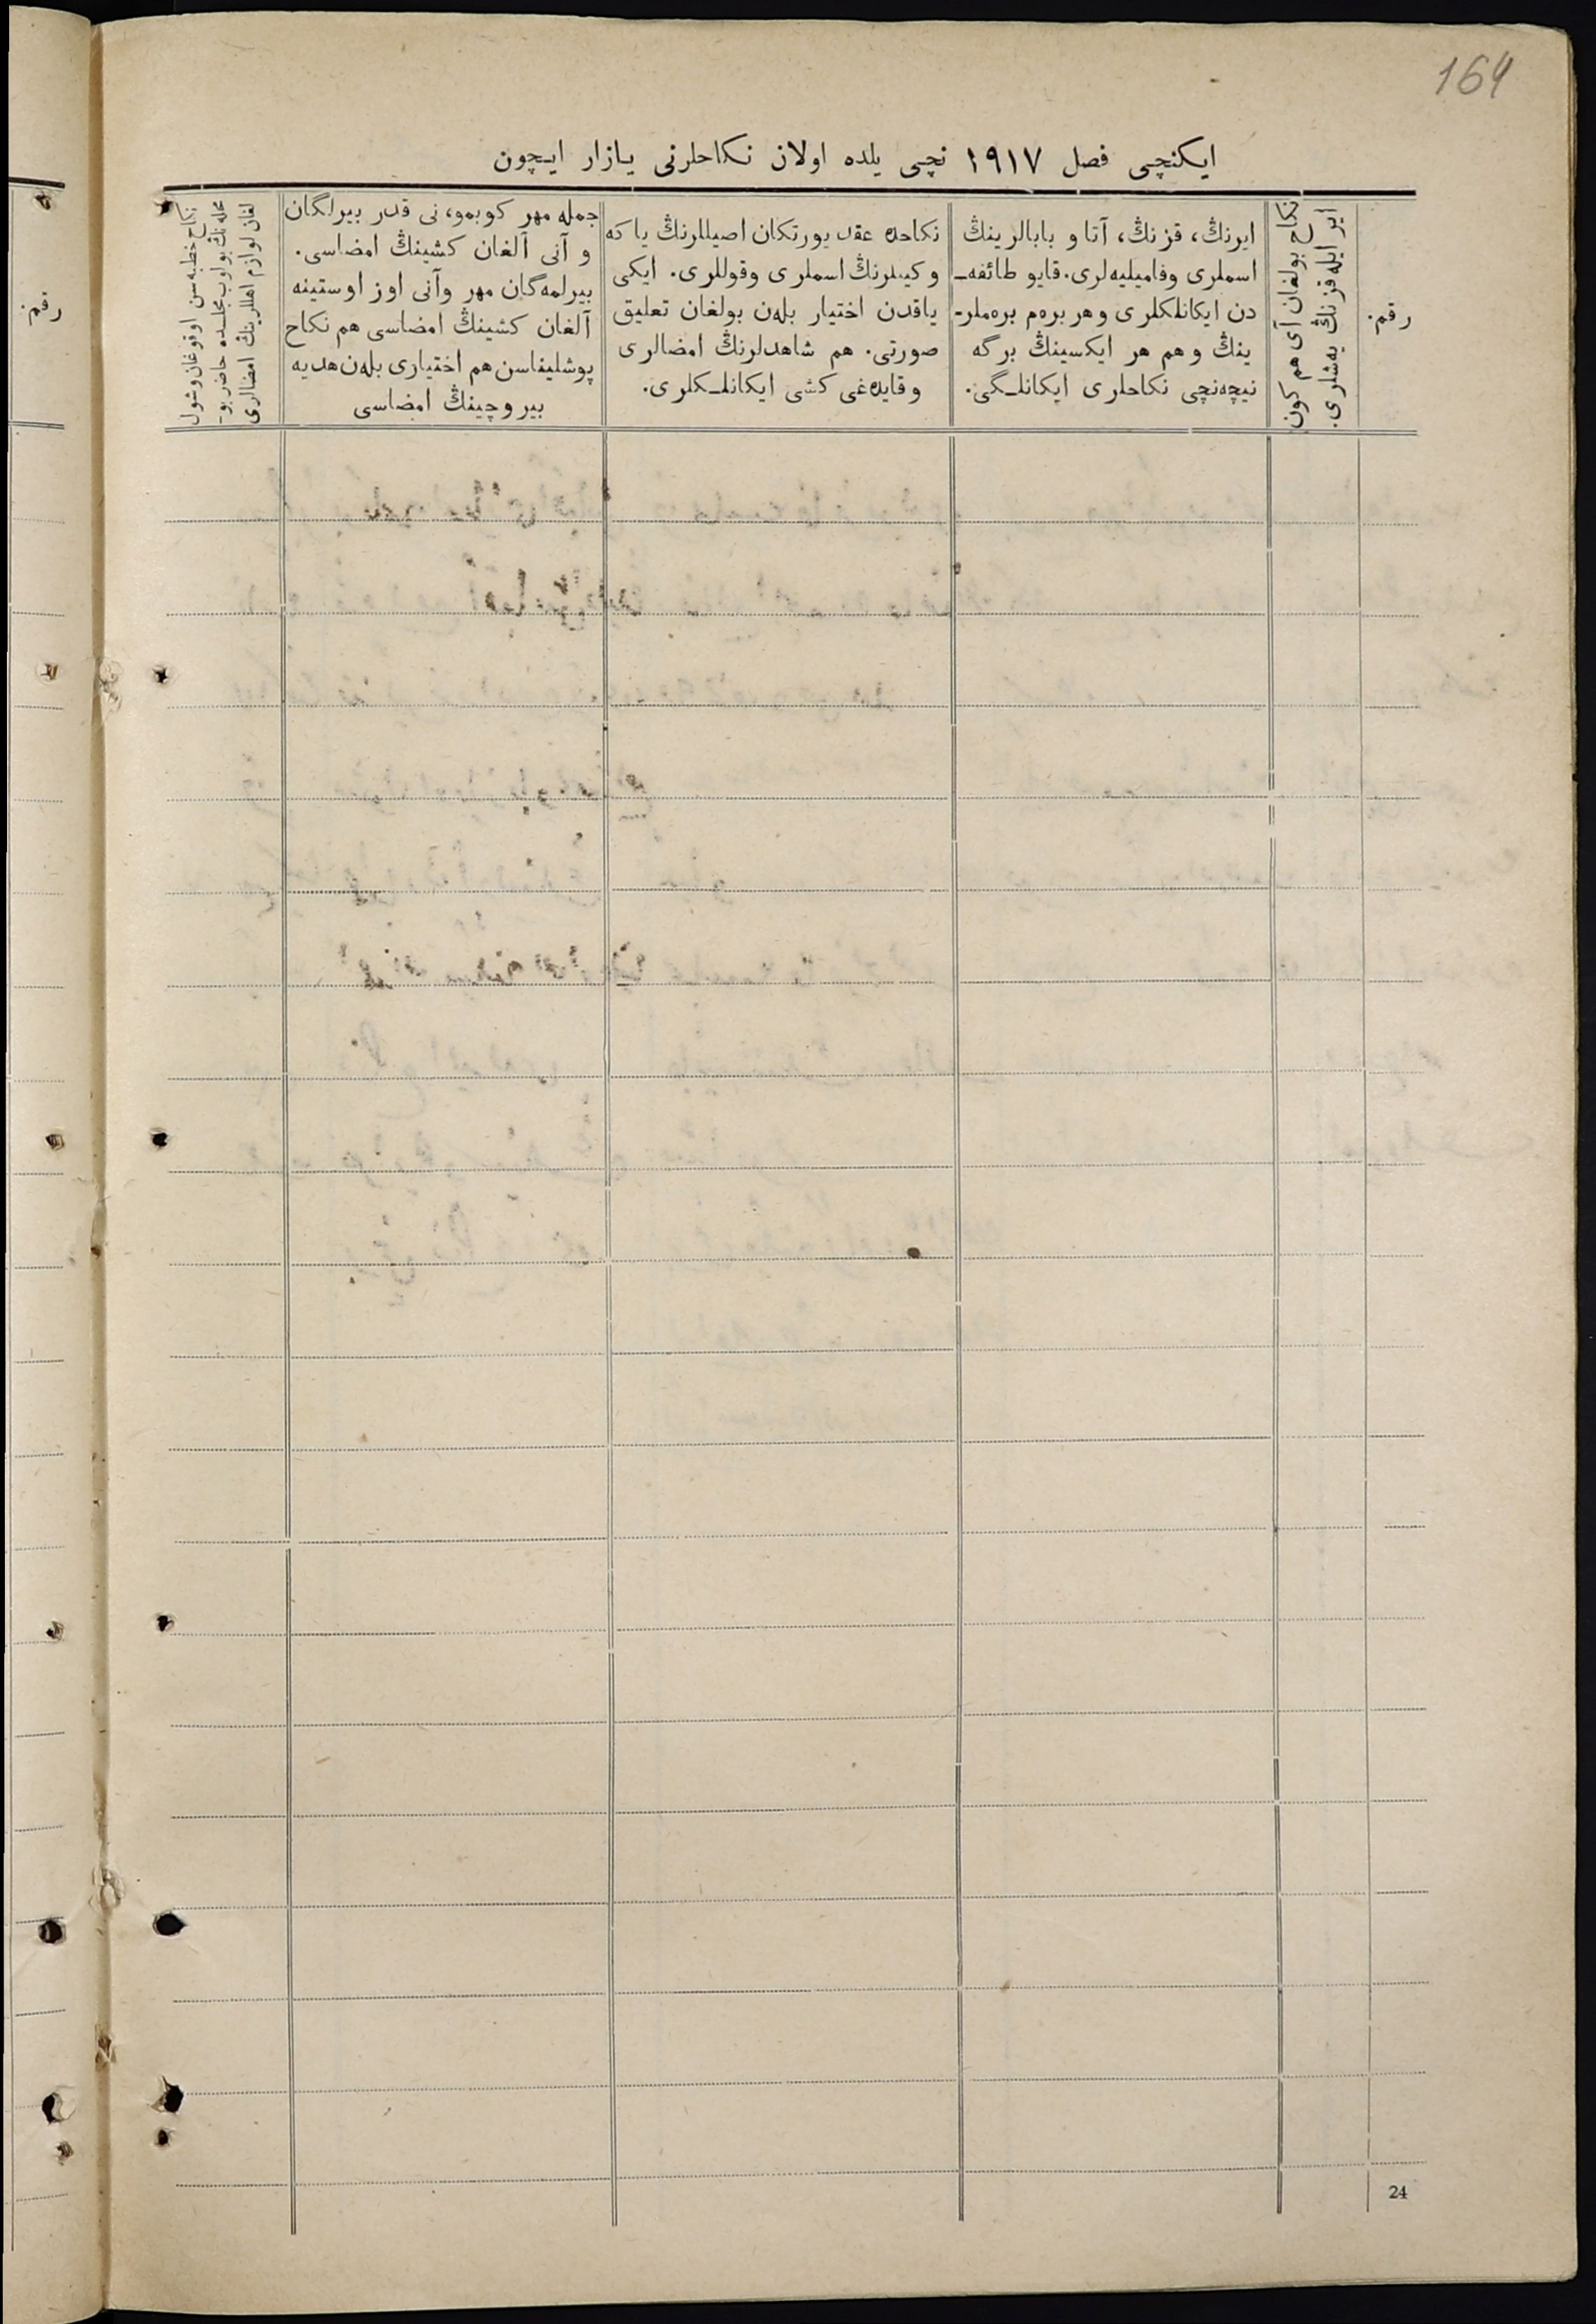 164
ایکنچی فصل ١٩١٧ نچی یلده اولان نکاحلرنی یازار ایچون
رقم.
نکاح بولغان آی هم کون
ایر ایله قزنڭ یه‌شلری.
ایرنڭ، قزنڭ، آتا و بابالرینڭ
اسملری وفامیلیه‌لری. قایو طائفه‌ـ
دن ایکانلکلری و هر بره‌م بره‌ملر‌ـ
ینڭ و هم هر ایکسینڭ برگه
نیچه‌نچی نکاحلری ایکانلـگی.
نکاحده عقد یورتکان اصیللرنڭ یا که
وکیللرنڭ اسملری وقوللری. ایکی
یاقدن اختیار بله‌ن بولغان تعلیق
صورتی. هم شاهدلرنڭ امضالری
و قایده‌غی کشی ایکانلـکلری.
جمله مهر کوبمو، نی قدر بیرلگان
و آنی آلغان کشینڭ امضاسی.
بیرلمه‌گان مهر وآنی اوز اوستینه
آلغان کشینڭ امضاسی هم نکاح
پوشلیناسن هم اختیاری بله‌ن هدیه
بیروچینڭ امضاسی
نکاح خطبه‌سن اوقوغان وشول
محله‌نڭ بولوب مجلسده حاضر بو‌ـ
لغان لوازم اهللرینڭ امضالری
رقم.
24